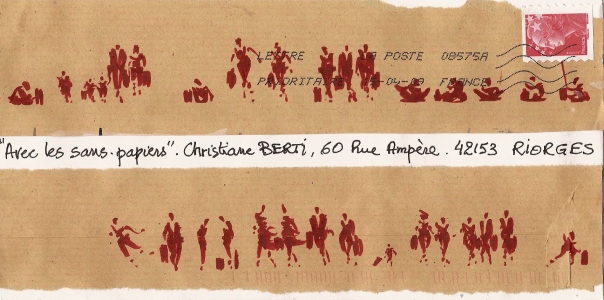 LETTRE LA POSTE 08575A
PRIORITAIRE 15-04-09 FRANCE
"Avec les sans-papiers". Christiane BERTI, 60 Rue Ampère. 42153 RIORGES